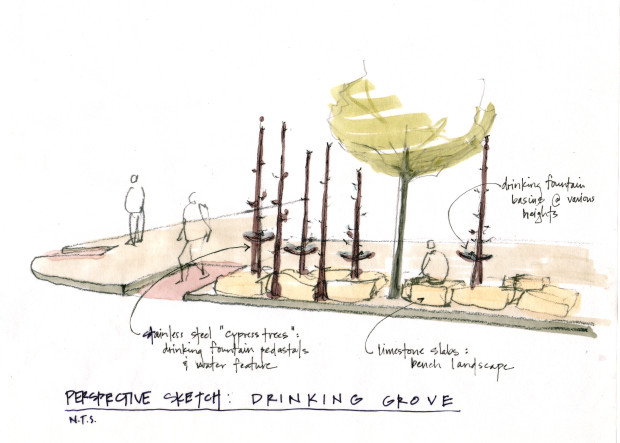 drinking fountain
basins @ various
heights
stainless steel "cypress trees":
drinking fountain pedastals
& water feature
limestone slabs:
bench landscape
PERSPECTIVE SKETCH: DRINKING GROVE
N.T.S.